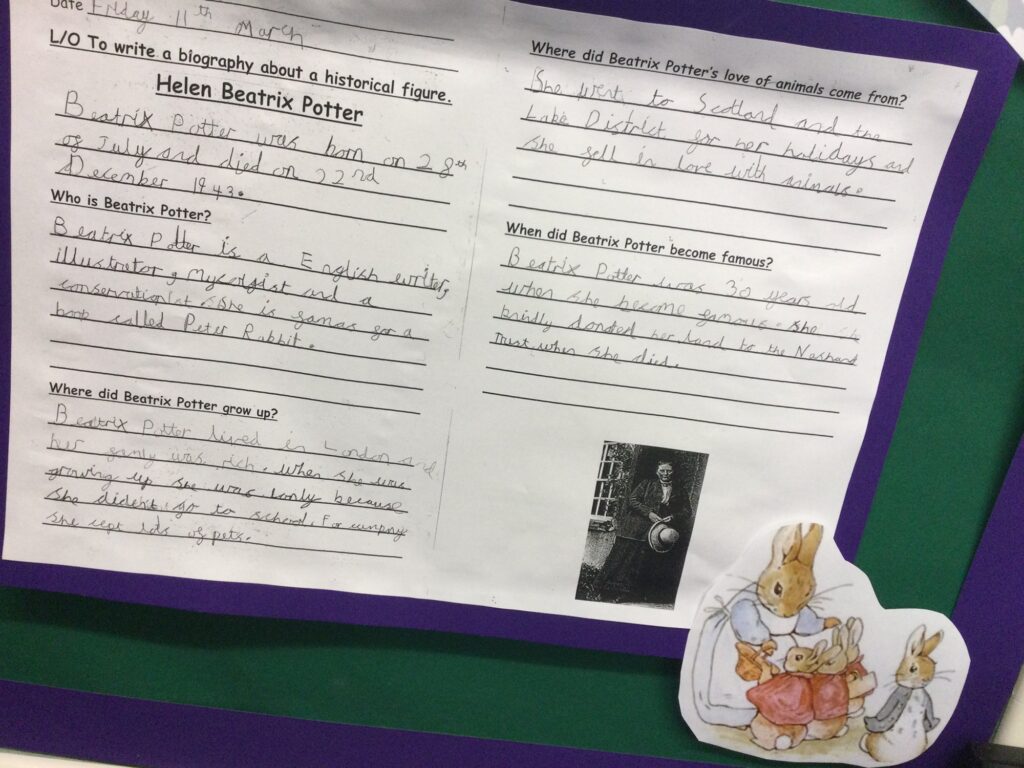 Date Friday 11th March
L/O To write a biography about a historical figure.
Helen Beatrix Potter
Beatrix Potter was born on 28th
of July and died on 22nd
December 1943.
Who is Beatrix Potter?
Beatrix Potter is a English writer,
illustrator, Mycolgist and a
conservationist she is famas for a
boop called Peter Rabbit.
Where did Beatrix Potter grow up?
Beatrix Potter lived in London and
her famly was rich. when she was
growing up she was lonly because
she dident go to school. For
she cept lots of pets.
Where did Beatrix Potter's love of animals come from?
She went to Scotland and the
Lake District for her holidays and
she fell in love with animals.
When did Beatrix Potter become famous?
Beatrix Potter was 30 years old
when she become famous. She
kindly donated her land to the
Trust when she died.